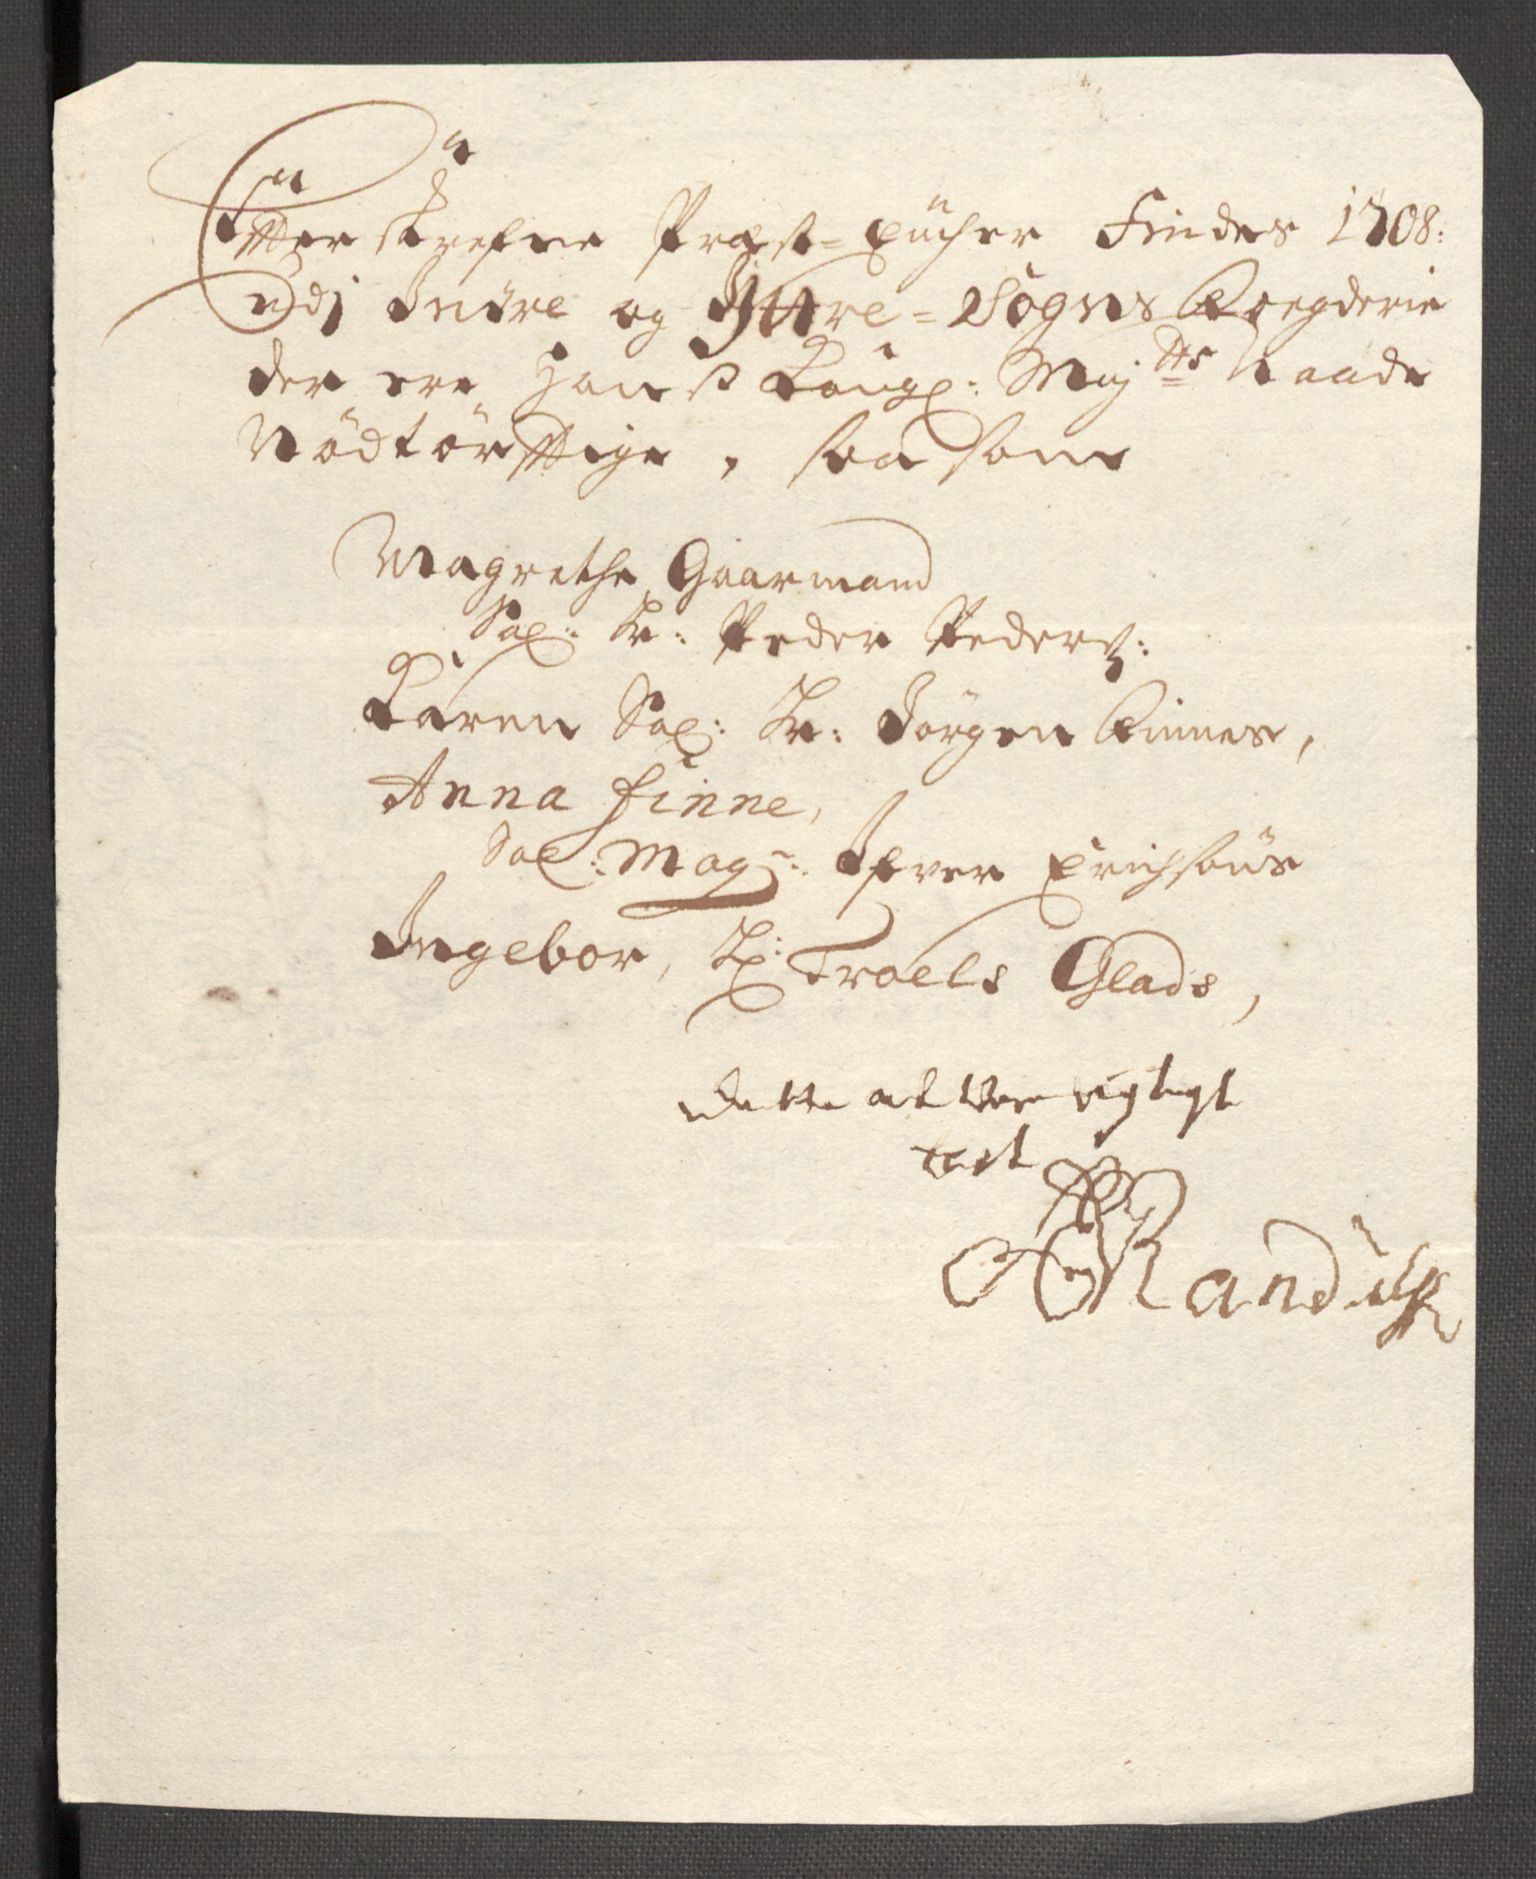 Efftterskrefne Præst=Encher Findes 1708:
udj Indre og Yttre=Sogns Foegderie
der ere Hanß Kongl: Maj:ts Naade
Nödtörfftige, saa som
Magrethe Gaarmand
Sal: Hr: Peder Peders:
Karen Sal: Hr: Jörgen Finnes,
Anna Finne,
Sal: Magr: Ifver Erichsöns
Ingebor, Hr: Troels Glads,
Dette at Vere rigtigt
test
Randulff